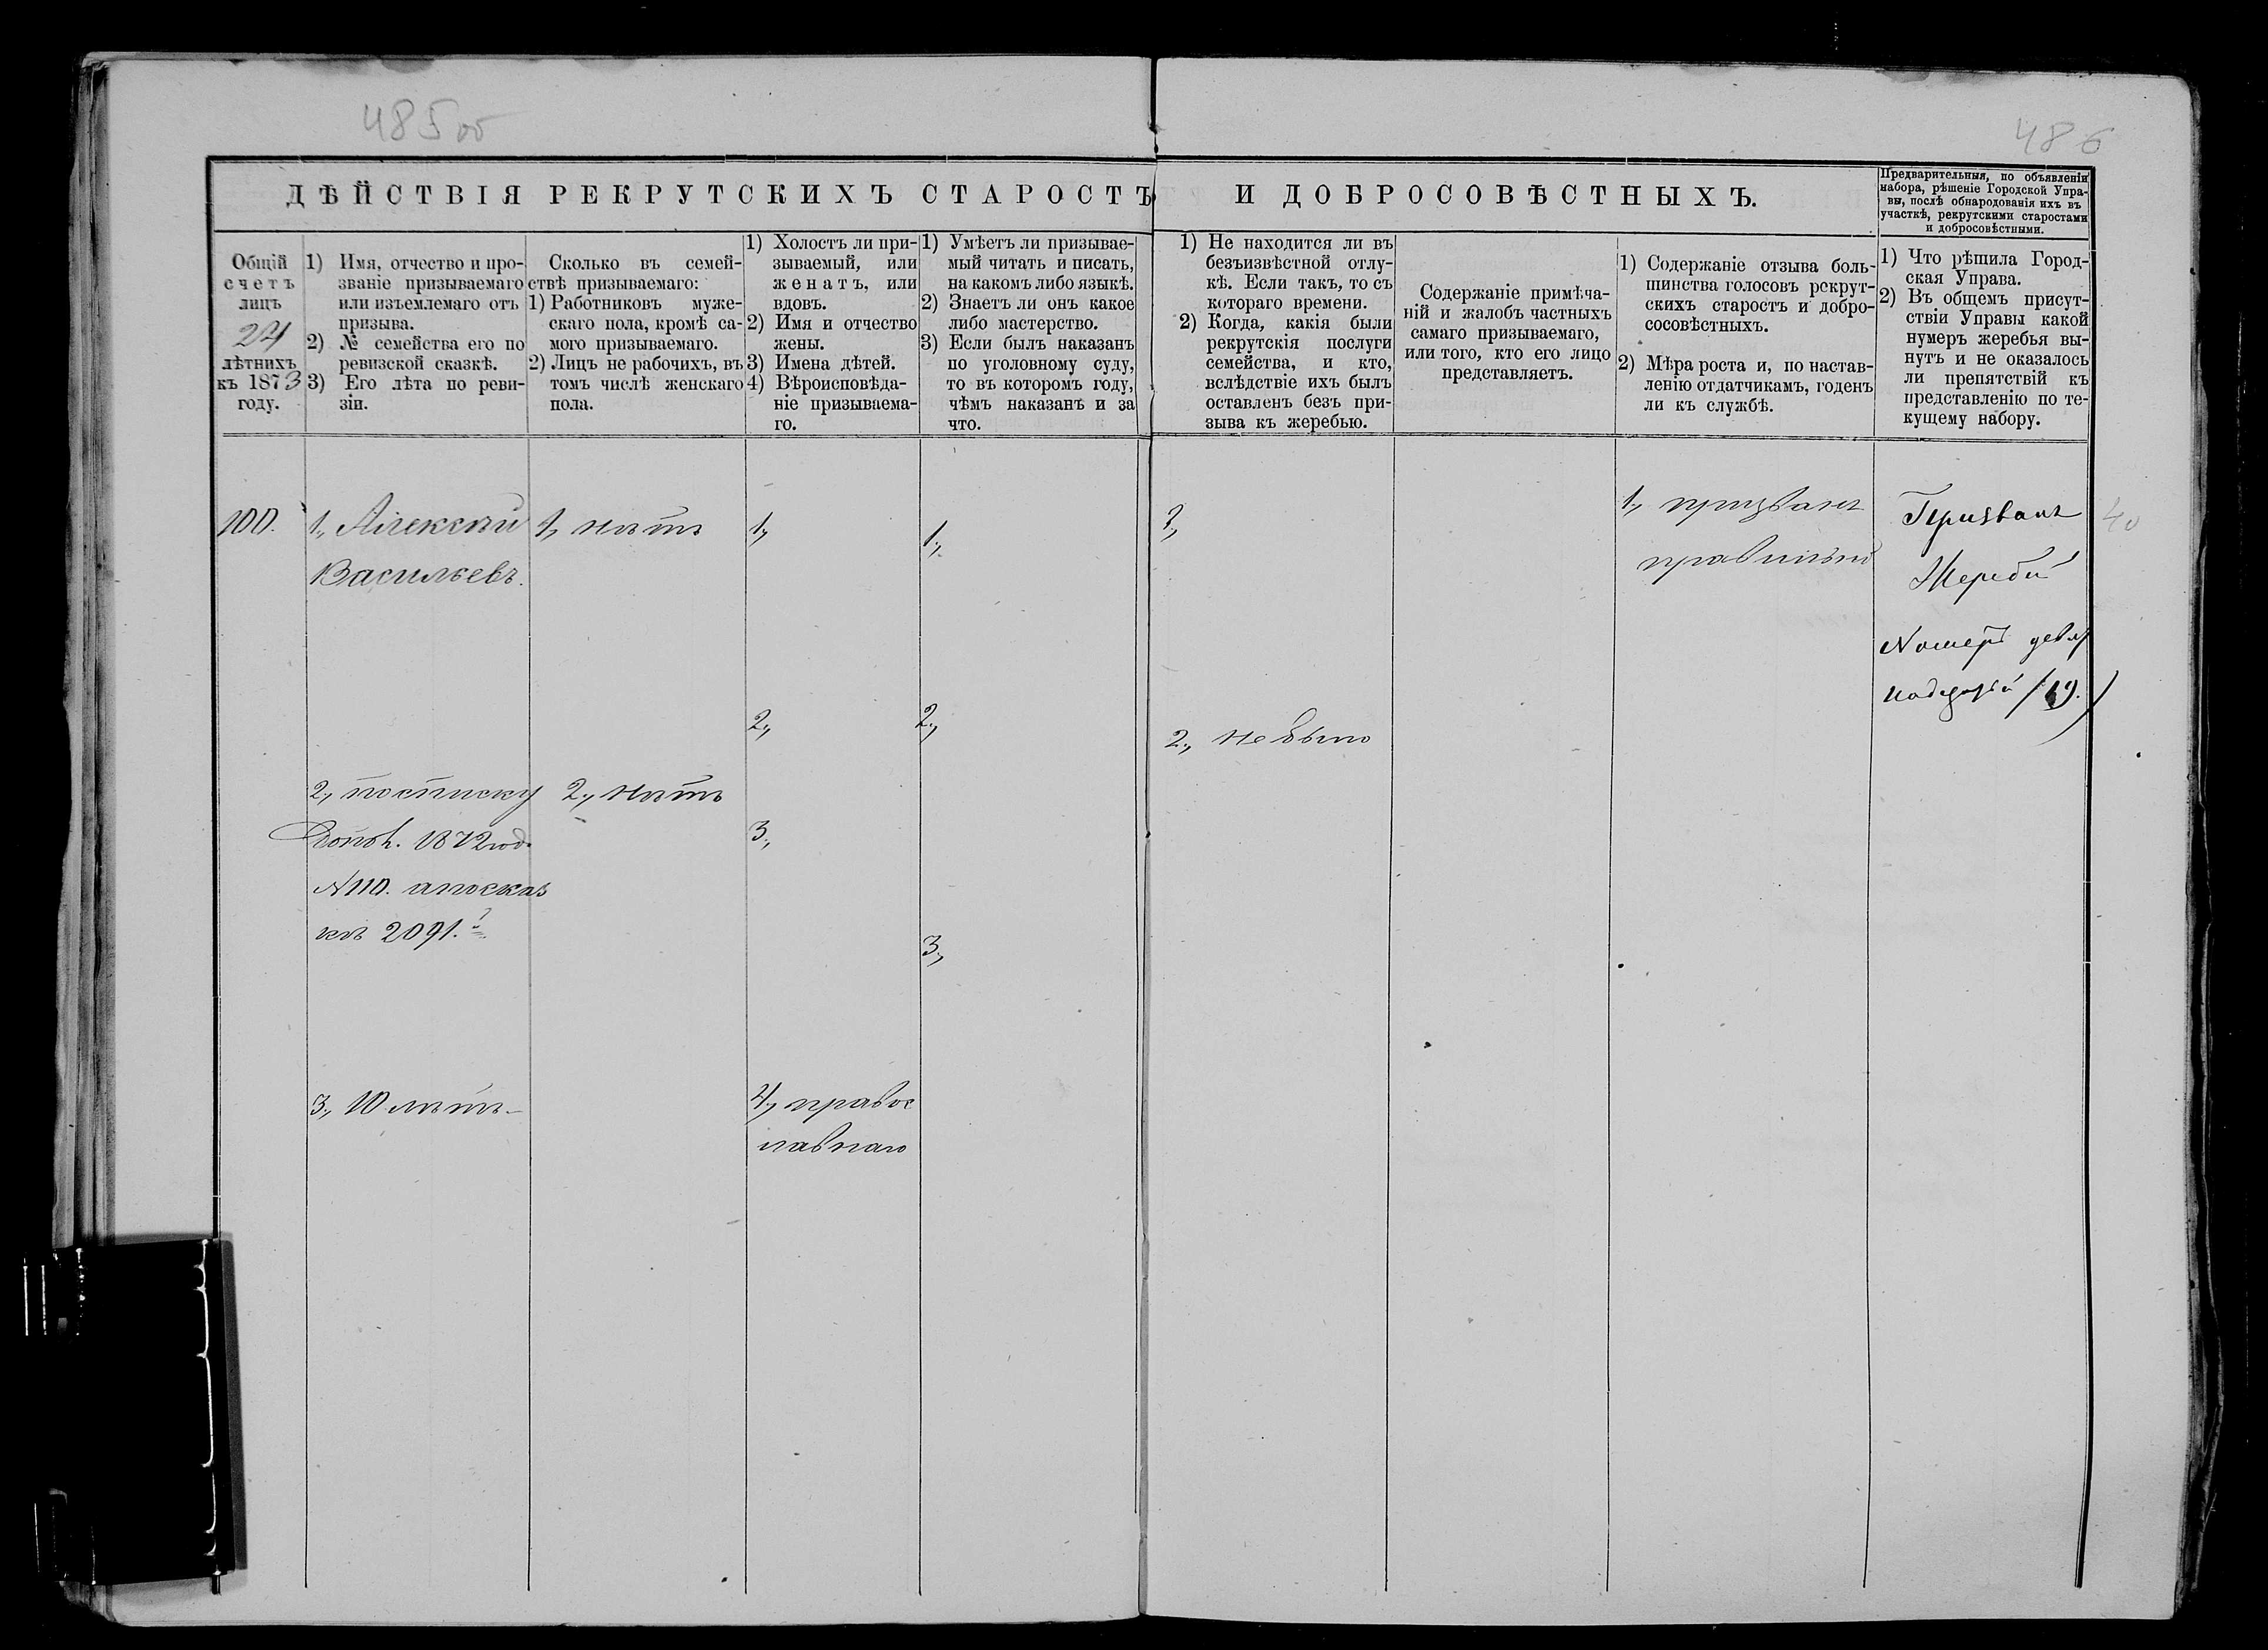 485об
486
ДѢЙСТВІЯ РЕКРУТСКИХЪ СТАРОСТЪ И ДОБРОСОВѢСТНЫХЪ.
Предварительныя, по объявленіи
набора, рѣшеніе Городской Упра-
вы, послѣ обнародованія ихъ въ
участкѣ, рекрутскими старостами
и добросовѣстными.
Общій
счетъ
лицъ
24
лѣтнихъ
къ 1873
году.
1) Имя, отчество и про-
званіе призываемаго
или изъемлемаго отъ
призыва.
2) № семейства его по
ревизской сказкѣ.
3) Его лѣта по реви-
зіи.
Сколько въ семей-
ствѣ призываемаго:
1) Работниковъ муже-
скаго пола, кромѣ са-
мого призываемаго.
2) Лицъ не рабочихъ, въ
томъ числѣ женскаго
пола.
1) Холостъ ли при-
зываемый, или
женатъ, или
вдовъ.
2) Имя и отчество
жены.
3) Имена дѣтей.
4) Вѣроисповѣда-
ніе призываема-
го.
1) Умѣетъ ли призывае-
мый читать и писать,
на какомъ либо языкѣ.
2) Знаетъ ли онъ какое
либо мастерство.
3) Если былъ наказанъ
по уголовному суду,
то въ которомъ году,
чѣмъ наказанъ и за
что.
1) Не находится ли въ
безъизвѣстной отлу-
кѣ. Если такъ, то съ
котораго времени.
2) Когда, какія были
рекрутскія послуги
семейства, и кто,
вслѣдствіе ихъ былъ
оставленъ безъ при-
зыва къ жеребью.
Содержаніе примѣча-
ній и жалобъ частныхъ
самаго призываемаго,
или того, кто его лицо
представляетъ.
1) Содержаніе отзыва боль-
шинства голосовъ рекрут-
скихъ старостъ и добро-
сосовѣстныхъ.
2) Мѣра роста и, по настав-
ленію отдатчикамъ, годенъ
ли къ службѣ.
1) Что рѣшила Город-
ская Управа.
2) Въ общемъ присут-
ствіи Управы какой
нумеръ жеребья вы-
нутъ и не оказалось
ли препятствій къ
представленію по те-
кущему набору.
100.
1, Алексѣй
Васильевъ.
2, посписку
допол. 1872 год
N 110. апосказ
кѣ 2091.
3, 10 лѣтъ
1, нѣтъ
2, нѣтъ
1,
2,
3,
4, правос
лавнаго
1,
2,
3,
2, небыло
1, призванъ
правильно
Призванъ
Жеребій
Номеръ девя
/19.)
40